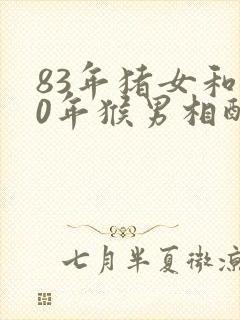 83年猪女和
0年猴男相配
七月半夏微凉